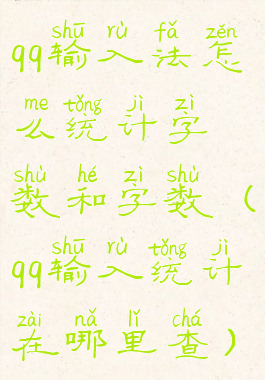 shū rù fǎ zěn
qq输入法怎
me tǒng jì zì
么统计字
shù hé zì shù
数和字数（
shū rù tǒng jì
qq输入统计
zài nǎ lǐ chá
在哪里查）